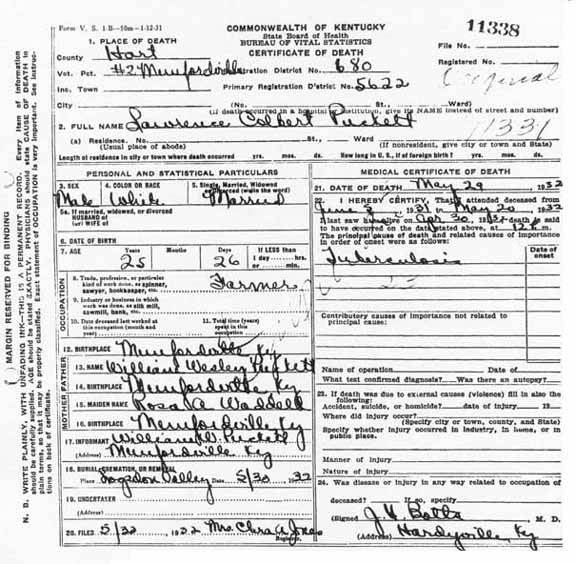 Form V. S. 1-B—50m—1-12-31
COMMONWEALTH OF KENTUCKY
State Board of Health
BUREAU OF VITAL STATISTICS
CERTIFICATE OF DEATH
11338
File No.
Registered No.
1. PLACE OF DEATH
County Hart
Vot. Pct. #2 Munfordville Registration District No. 680
Inc. Town Primary Registration District No. 5622
City (No. St. Ward)
(If death occurred in a hospital or institution, give its NAME instead of street and number)
2. FULL NAME Lawrence Colbert Puckett
11331
(a) Residence. No. St. Ward
(Usual place of abode) (If nonresident, give city or town and State)
Length of residence in city or town where death occurred yrs. mos. ds. How long in U. S., if of foreign birth? yrs. mos. ds.
PERSONAL AND STATISTICAL PARTICULARS
3. SEX 4. COLOR OR RACE 5. Single, Married, Widowed
or Divorced (write the word)
Male White Married
5a. If married, widowed, or divorced
HUSBAND of
(or) WIFE of
6. DATE OF BIRTH
7. AGE Years Months Days If LESS than
1 day hrs.
or min.
25 26
OCCUPATION
8. Trade, profession, or particular
kind of work done, as spinner,
sawyer, bookkeeper, etc. Farmer
9. Industry or business in which
work was done, as silk mill,
sawmill, bank, etc.
10. Date deceased last worked at
this occupation (month and
year)
11. Total time (years)
spent in this
occupation
12. BIRTHPLACE Munfordville Ky
FATHER
13. NAME William Wesley Puckett
14. BIRTHPLACE Munfordville Ky
MOTHER
15. MAIDEN NAME Rosa A Waddell
16. BIRTHPLACE Munfordville Ky
17. INFORMANT William W. Puckett
(Address) Munfordville Ky
18. BURIAL, CREMATION, OR REMOVAL
Place Logsdon Valley Date 5/30 1932
19. UNDERTAKER
(Address)
20. FILED 5/32 1932 Mrs. Clara A Jones
Registrar.
MEDICAL CERTIFICATE OF DEATH
21. DATE OF DEATH May 29 1932
22. I HEREBY CERTIFY, That I attended deceased from
June 3, 1931 to May 20, 1932
I last saw him alive on Apr 30, 1932 death is said
to have occurred on the date stated above, at 12 m.
The principal cause of death and related causes of importance
in order of onset were as follows:
Date of
onset
Tuberculosis
23
Contributory causes of importance not related to
principal cause:
Name of operation Date of
What test confirmed diagnosis? Was there an autopsy
23. If death was due to external causes (violence) fill in also the
following:
Accident, suicide, or homicide? date of injury 19
Where did injury occur?
(Specify city or town, county, and State)
Specify whether injury occurred in industry, in home, or in
public place.
Manner of injury
Nature of injury
24. Was disease or injury in any way related to occupation of
deceased? If so, specify
(Signed J H Botts M. D.
(Address) Hardyville, Ky
MARGIN RESERVED FOR BINDING
N. B. WRITE PLAINLY, WITH UNFADING INK—THIS IS A PERMANENT RECORD. Every item of information
should be carefully supplied. AGE should be stated EXACTLY. PHYSICIANS should state CAUSE OF DEATH in
plain terms, so that it may be properly classified. Exact statement of OCCUPATION is very important. See instruc-
tions on back of certificate.